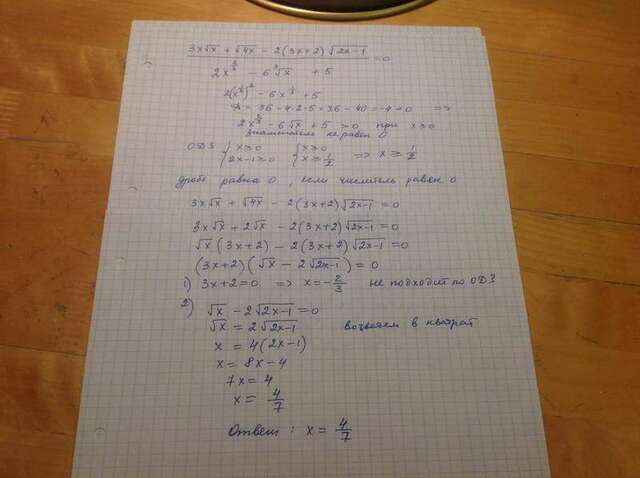 3x√x + √4x − 2(3x+2)√2x−1 = 0
2x^⅔ − 6∛x + 5
2(x^⅓)² − 6x^⅓ + 5
D = 36 − 4·2·5 = 36 − 40 = −4 < 0 ⇒
2x^⅔ − 6∛x + 5 > 0 при x ≥ 0
знаменатель не равен 0
ОДЗ { x ≥ 0 { x ≥ 0
2x−1 ≥ 0 x ≥ 1/2 ⇒ x ≥ 1/2
дробь равна 0, если числитель равен 0
3x√x + √4x − 2(3x+2)√2x−1 = 0
3x√x + 2√x − 2(3x+2)√2x−1 = 0
√x (3x+2) − 2(3x+2)√2x−1 = 0
(3x+2)(√x − 2√2x−1) = 0
1) 3x+2=0 ⇒ x = −2/3 не подходит по ОДЗ
2) √x − 2√2x−1 = 0
√x = 2√2x−1 возведем в квадрат
x = 4(2x−1)
x = 8x − 4
7x = 4
x = 4/7
Ответ: x = 4/7